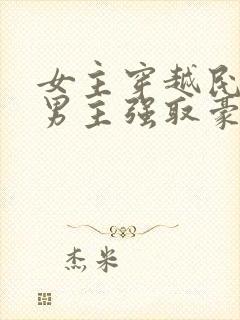 女主穿越民
男主强取豪
杰米